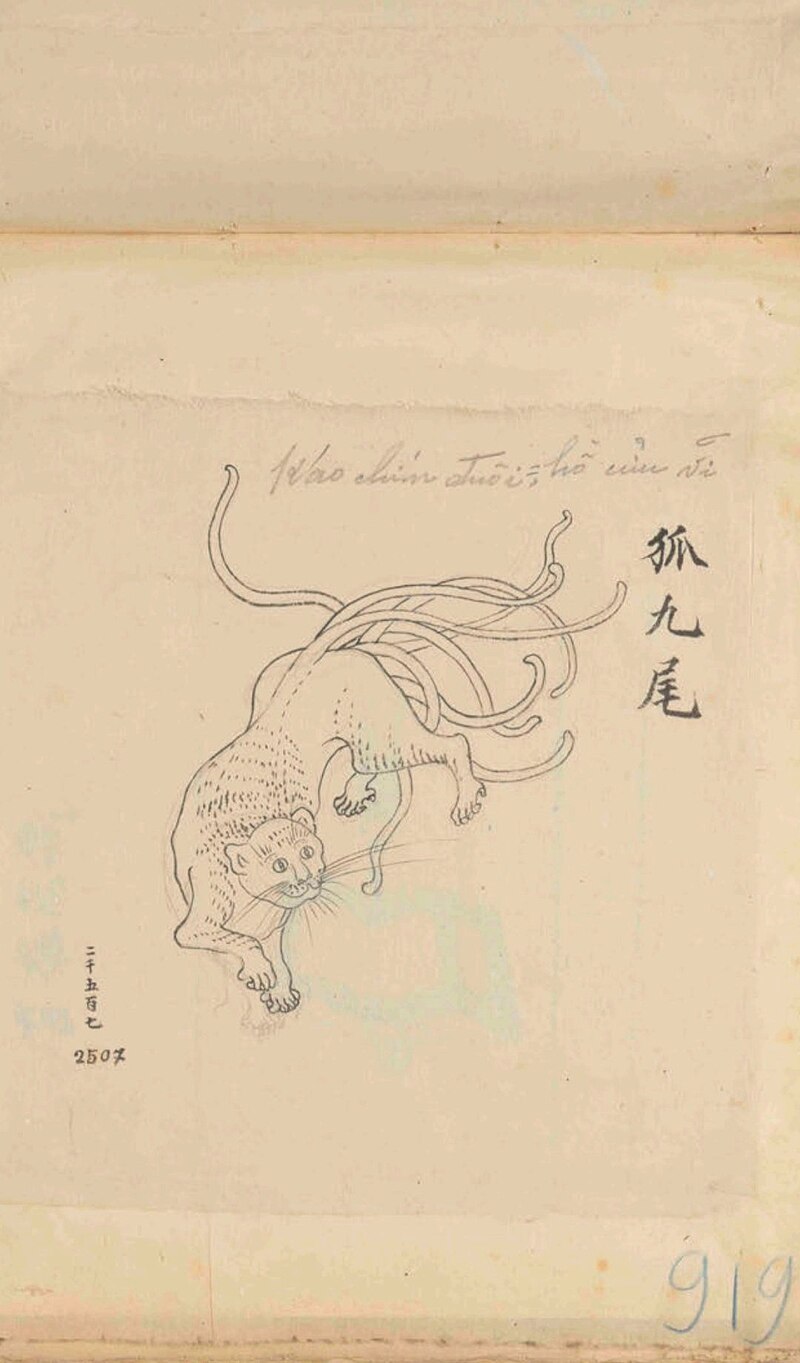 Cáo chín đuôi = hồ cửu vĩ
狐九尾
二千五百七
2507
919